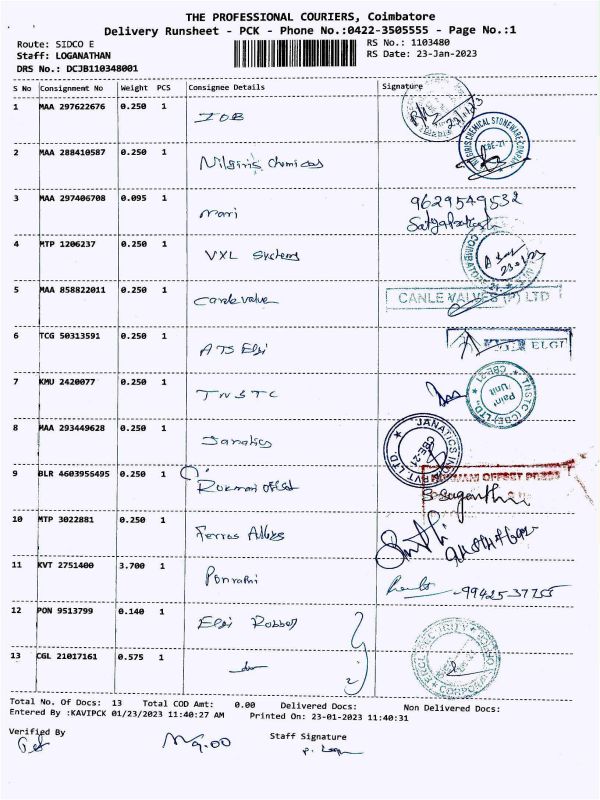 THE PROFESSIONAL COURIERS, Coimbatore
Delivery Runsheet - PCK - Phone No.:0422-3505555 - Page No.:1
Route: SIDCO E RS No.: 1103480
Staff: LOGANATHAN RS Date: 23-Jan-2023
DRS No.: DCJB110348001
S No Consignment No Weight PCS Consignee Details Signature
1 MAA 297622676 0.250 1 IOB
2 MAA 288410587 0.250 1 Nilgiris Chemicals
3 MAA 297406708 0.095 1 mani 9629549532
4 MTP 1206237 0.250 1 VXL Systems
5 MAA 858822011 0.250 1 Canle valve CANLE VALVES (P) LTD
6 TCG 50313591 0.250 1 ATS Elgi ELGI
7 KMU 2420077 0.250 1 TNSTC TNSTC (CBE) LTD., CBE-21
8 MAA 293449628 0.250 1 Janatics JANATICS PVT. LTD CBE-21
9 BLR 4603955495 0.250 1 Rukmani offset RUKMANI OFFSET PRESS
10 MTP 3022881 0.250 1 Ferras Alloys
11 KVT 2751400 3.700 1 Ponrathi
12 PON 9513799 0.140 1 Elgi Rubber
13 CGL 21017161 0.575 1
Total No. Of Docs: 13 Total COD Amt: 0.00 Delivered Docs: Non Delivered Docs:
Entered By :KAVIPCK 01/23/2023 11:40:27 AM Printed On: 23-01-2023 11:40:31
Verified By Staff Signature